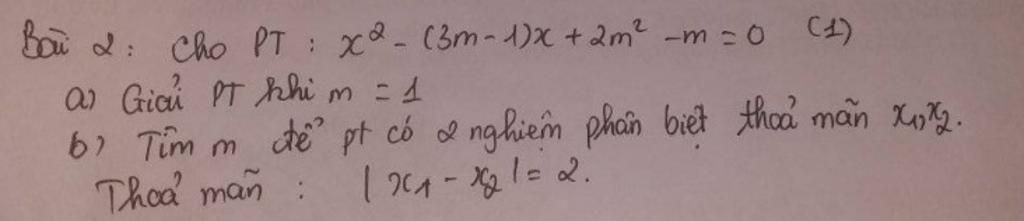 Bài 2: Cho PT : x² - (3m-1)x + 2m² - m = 0 (1)
a) Giải PT khi m = 1
b) Tìm m để pt có 2 nghiệm phân biệt thoả mãn x₁, x₂.
Thoả mãn : |x₁ - x₂| = 2.